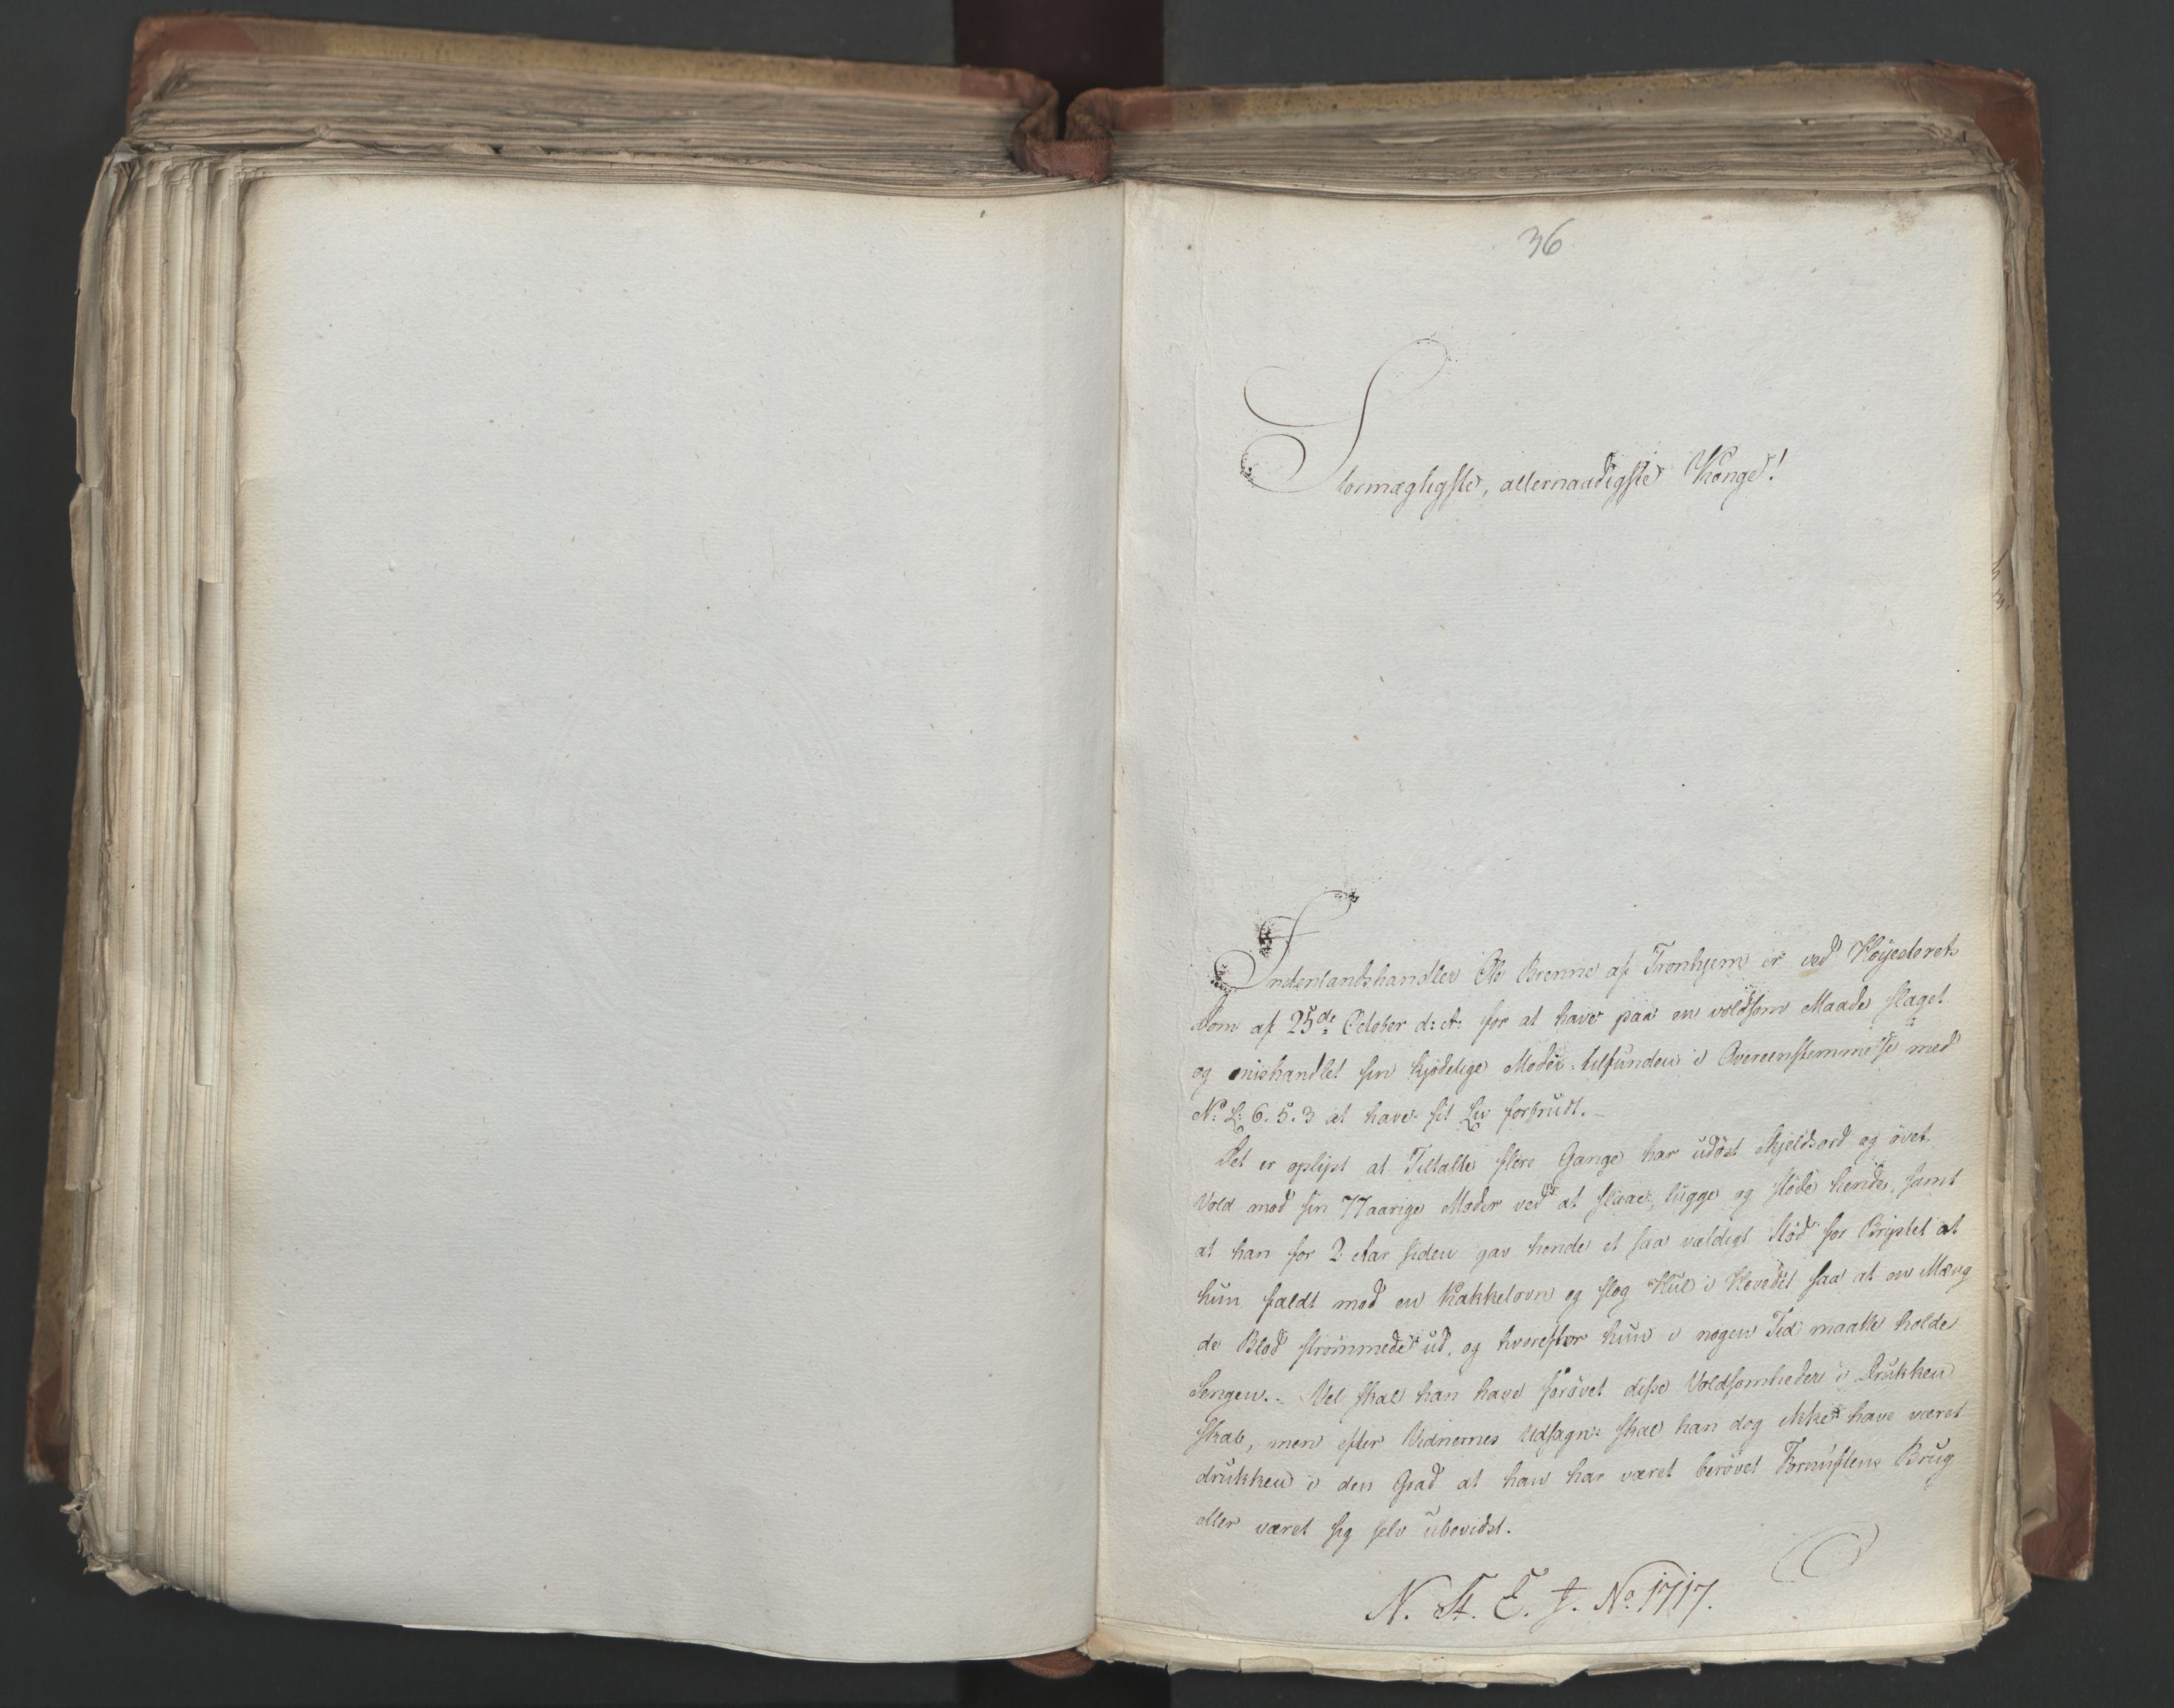 36
Stormægtigste, allernaadigste Konge!
Indenlandshandler Ole Brenne af Tronhjem er ved Høyesterets
Dom af 25de October d: A: for at have paa en voldsom Maade slaget
og mishandlet sin kjødelige Moder tilfunden i Overeensstemmelse med
N: L: 6. 5. 3 at have sit Liv forbrudt.
Det er oplyst at Tiltalte flere Gange har udøst Skjeldsord og øvet
Vold mod sin 77aarige Moder ved at slaae, lugge og støde hende, samt
at han for 2 Aar siden gav hende et saa vældigt Stød for Brystet at
hun faldt mod en Kakkelovn og slog Hul i Hovedet saa at en Mæng
de Blod strömmede ud, og hvorefter hun i nogen Tid maatte holde
Sengen. Vel skal han have forövet disse Voldsomheder i Drukken
skab, men efter Vidnernes Udsagn skal han dog ikke have været
drukken i den Grad at han har været berövet Fornuftens Brug
eller været sig selv ubevidst.
N. St. E. J. No. 1717.